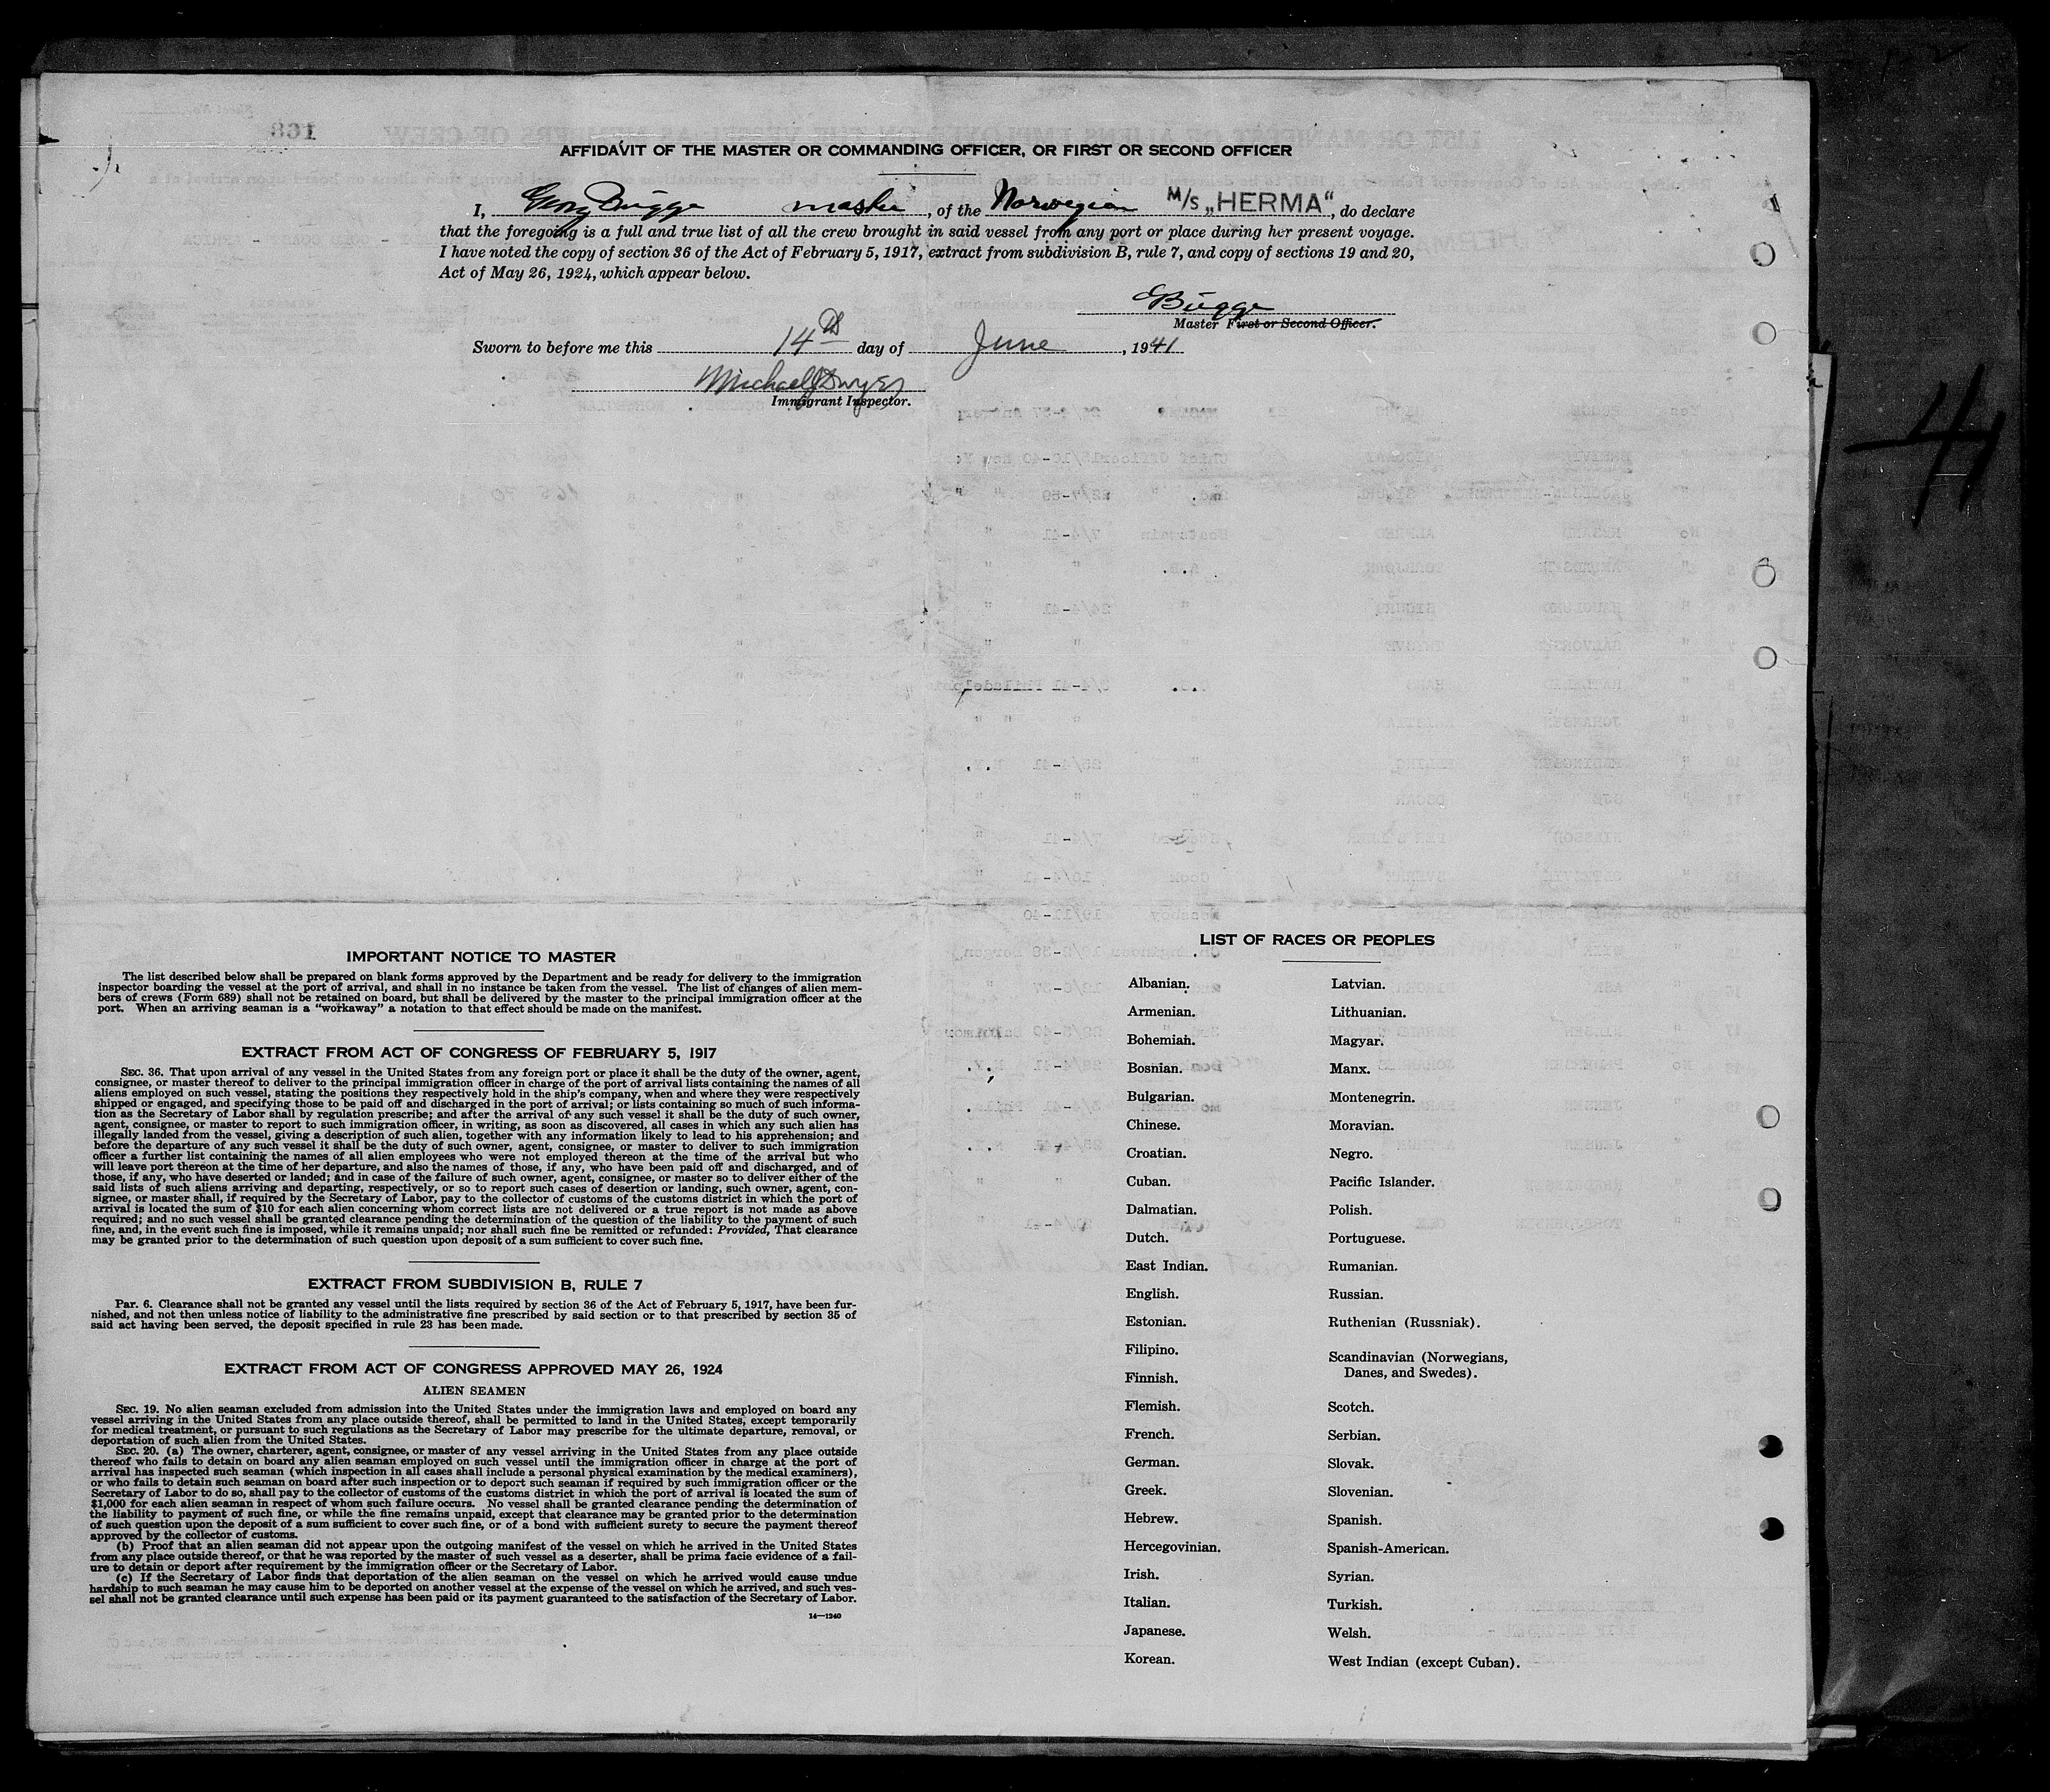 AFFIDAVIT OF THE MASTER OR COMMANDING OFFICER, OR FIRST OR SECOND OFFICER
I, Georg Bugge master, of the Norwegian M/s „HERMA", do declare
that the foregoing is a full and true list of all the crew brought in said vessel from any port or place during her present voyage.
I have noted the copy of section 36 of the Act of February 5, 1917, extract from subdivision B, rule 7, and copy of sections 19 and 20,
Act of May 26, 1924, which appear below.
GBugge
Master First or Second Officer.
Sworn to before me this 14th day of June, 1941
Michael J Dwyer
Immigrant Inspector.
41
IMPORTANT NOTICE TO MASTER
The list described below shall be prepared on blank forms approved by the Department and be ready for delivery to the immigration
inspector boarding the vessel at the port of arrival, and shall in no instance be taken from the vessel. The list of changes of alien mem-
bers of crews (Form 689) shall not be retained on board, but shall be delivered by the master to the principal immigration officer at the
port. When an arriving seaman is a "workaway" a notation to that effect should be made on the manifest.
EXTRACT FROM ACT OF CONGRESS OF FEBRUARY 5, 1917
SEC. 36. That upon arrival of any vessel in the United States from any foreign port or place it shall be the duty of the owner, agent,
consignee, or master thereof to deliver to the principal immigration officer in charge of the port of arrival lists containing the names of all
aliens employed on such vessel, stating the positions they respectively hold in the ship's company, when and where they were respectively
shipped or engaged, and specifying those to be paid off and discharged in the port of arrival; or lists containing so much of such informa-
tion as the Secretary of Labor shall by regulation prescribe; and after the arrival of any such vessel it shall be the duty of such owner,
agent, consignee, or master to report to such immigration officer, in writing, as soon as discovered, all cases in which any such alien has
illegally landed from the vessel, giving a description of such alien, together with any information likely to lead to his apprehension; and
before the departure of any such vessel it shall be the duty of such owner, agent, consignee, or master to deliver to such immigration
officer a further list containing the names of all alien employees who were not employed thereon at the time of the arrival but who
will leave port thereon at the time of her departure, and also the names of those, if any, who have been paid off and discharged, and of
those, if any, who have deserted or landed; and in case of the failure of such owner, agent, consignee, or master so to deliver either of the
said lists of such aliens arriving and departing, respectively, or so to report such cases of desertion or landing, such owner, agent, con-
signee, or master shall, if required by the Secretary of Labor, pay to the collector of customs of the customs district in which the port of
arrival is located the sum of $10 for each alien concerning whom correct lists are not delivered or a true report is not made as above
required; and no such vessel shall be granted clearance pending the determination of the question of the liability to the payment of such
fine, and, in the event such fine is imposed, while it remains unpaid; nor shall such fine be remitted or refunded: Provided, That clearance
may be granted prior to the determination of such question upon deposit of a sum sufficient to cover such fine.
EXTRACT FROM SUBDIVISION B, RULE 7
Par. 6. Clearance shall not be granted any vessel until the lists required by section 36 of the Act of February 5, 1917, have been fur-
nished, and not then unless notice of liability to the administrative fine prescribed by said section or to that prescribed by section 35 of
said act having been served, the deposit specified in rule 23 has been made.
EXTRACT FROM ACT OF CONGRESS APPROVED MAY 26, 1924
ALIEN SEAMEN
SEC. 19. No alien seaman excluded from admission into the United States under the immigration laws and employed on board any
vessel arriving in the United States from any place outside thereof, shall be permitted to land in the United States, except temporarily
for medical treatment, or pursuant to such regulations as the Secretary of Labor may prescribe for the ultimate departure, removal, or
deportation of such alien from the United States.
SEC. 20. (a) The owner, charterer, agent, consignee, or master of any vessel arriving in the United States from any place outside
thereof who fails to detain on board any alien seaman employed on such vessel until the immigration officer in charge at the port of
arrival has inspected such seaman (which inspection in all cases shall include a personal physical examination by the medical examiners),
or who fails to detain such seaman on board after such inspection or to deport such seaman if required by such immigration officer or the
Secretary of Labor to do so, shall pay to the collector of customs of the customs district in which the port of arrival is located the sum of
$1,000 for each alien seaman in respect of whom such failure occurs. No vessel shall be granted clearance pending the determination of
the liability to payment of such fine, or while the fine remains unpaid, except that clearance may be granted prior to the determination
of such question upon the deposit of a sum sufficient to cover such fine, or of a bond with sufficient surety to secure the payment thereof
approved by the collector of customs.
(b) Proof that an alien seaman did not appear upon the outgoing manifest of the vessel on which he arrived in the United States
from any place outside thereof, or that he was reported by the master of such vessel as a deserter, shall be prima facie evidence of a fail-
ure to detain or deport after requirement by the immigration officer or the Secretary of Labor.
(c) If the Secretary of Labor finds that deportation of the alien seaman on the vessel on which he arrived would cause undue
hardship to such seaman he may cause him to be deported on another vessel at the expense of the vessel on which he arrived, and such ves-
sel shall not be granted clearance until such expense has been paid or its payment guaranteed to the satisfaction of the Secretary of Labor.
14—1240
LIST OF RACES OR PEOPLES
Albanian.
Armenian.
Bohemian.
Bosnian.
Bulgarian.
Chinese.
Croatian.
Cuban.
Dalmatian.
Dutch.
East Indian.
English.
Estonian.
Filipino.
Finnish.
Flemish.
French.
German.
Greek.
Hebrew.
Hercegovinian.
Irish.
Italian.
Japanese.
Korean.
Latvian.
Lithuanian.
Magyar.
Manx.
Montenegrin.
Moravian.
Negro.
Pacific Islander.
Polish.
Portuguese.
Rumanian.
Russian.
Ruthenian (Russniak).
Scandinavian (Norwegians,
Danes, and Swedes).
Scotch.
Serbian.
Slovak.
Slovenian.
Spanish.
Spanish-American.
Syrian.
Turkish.
Welsh.
West Indian (except Cuban).